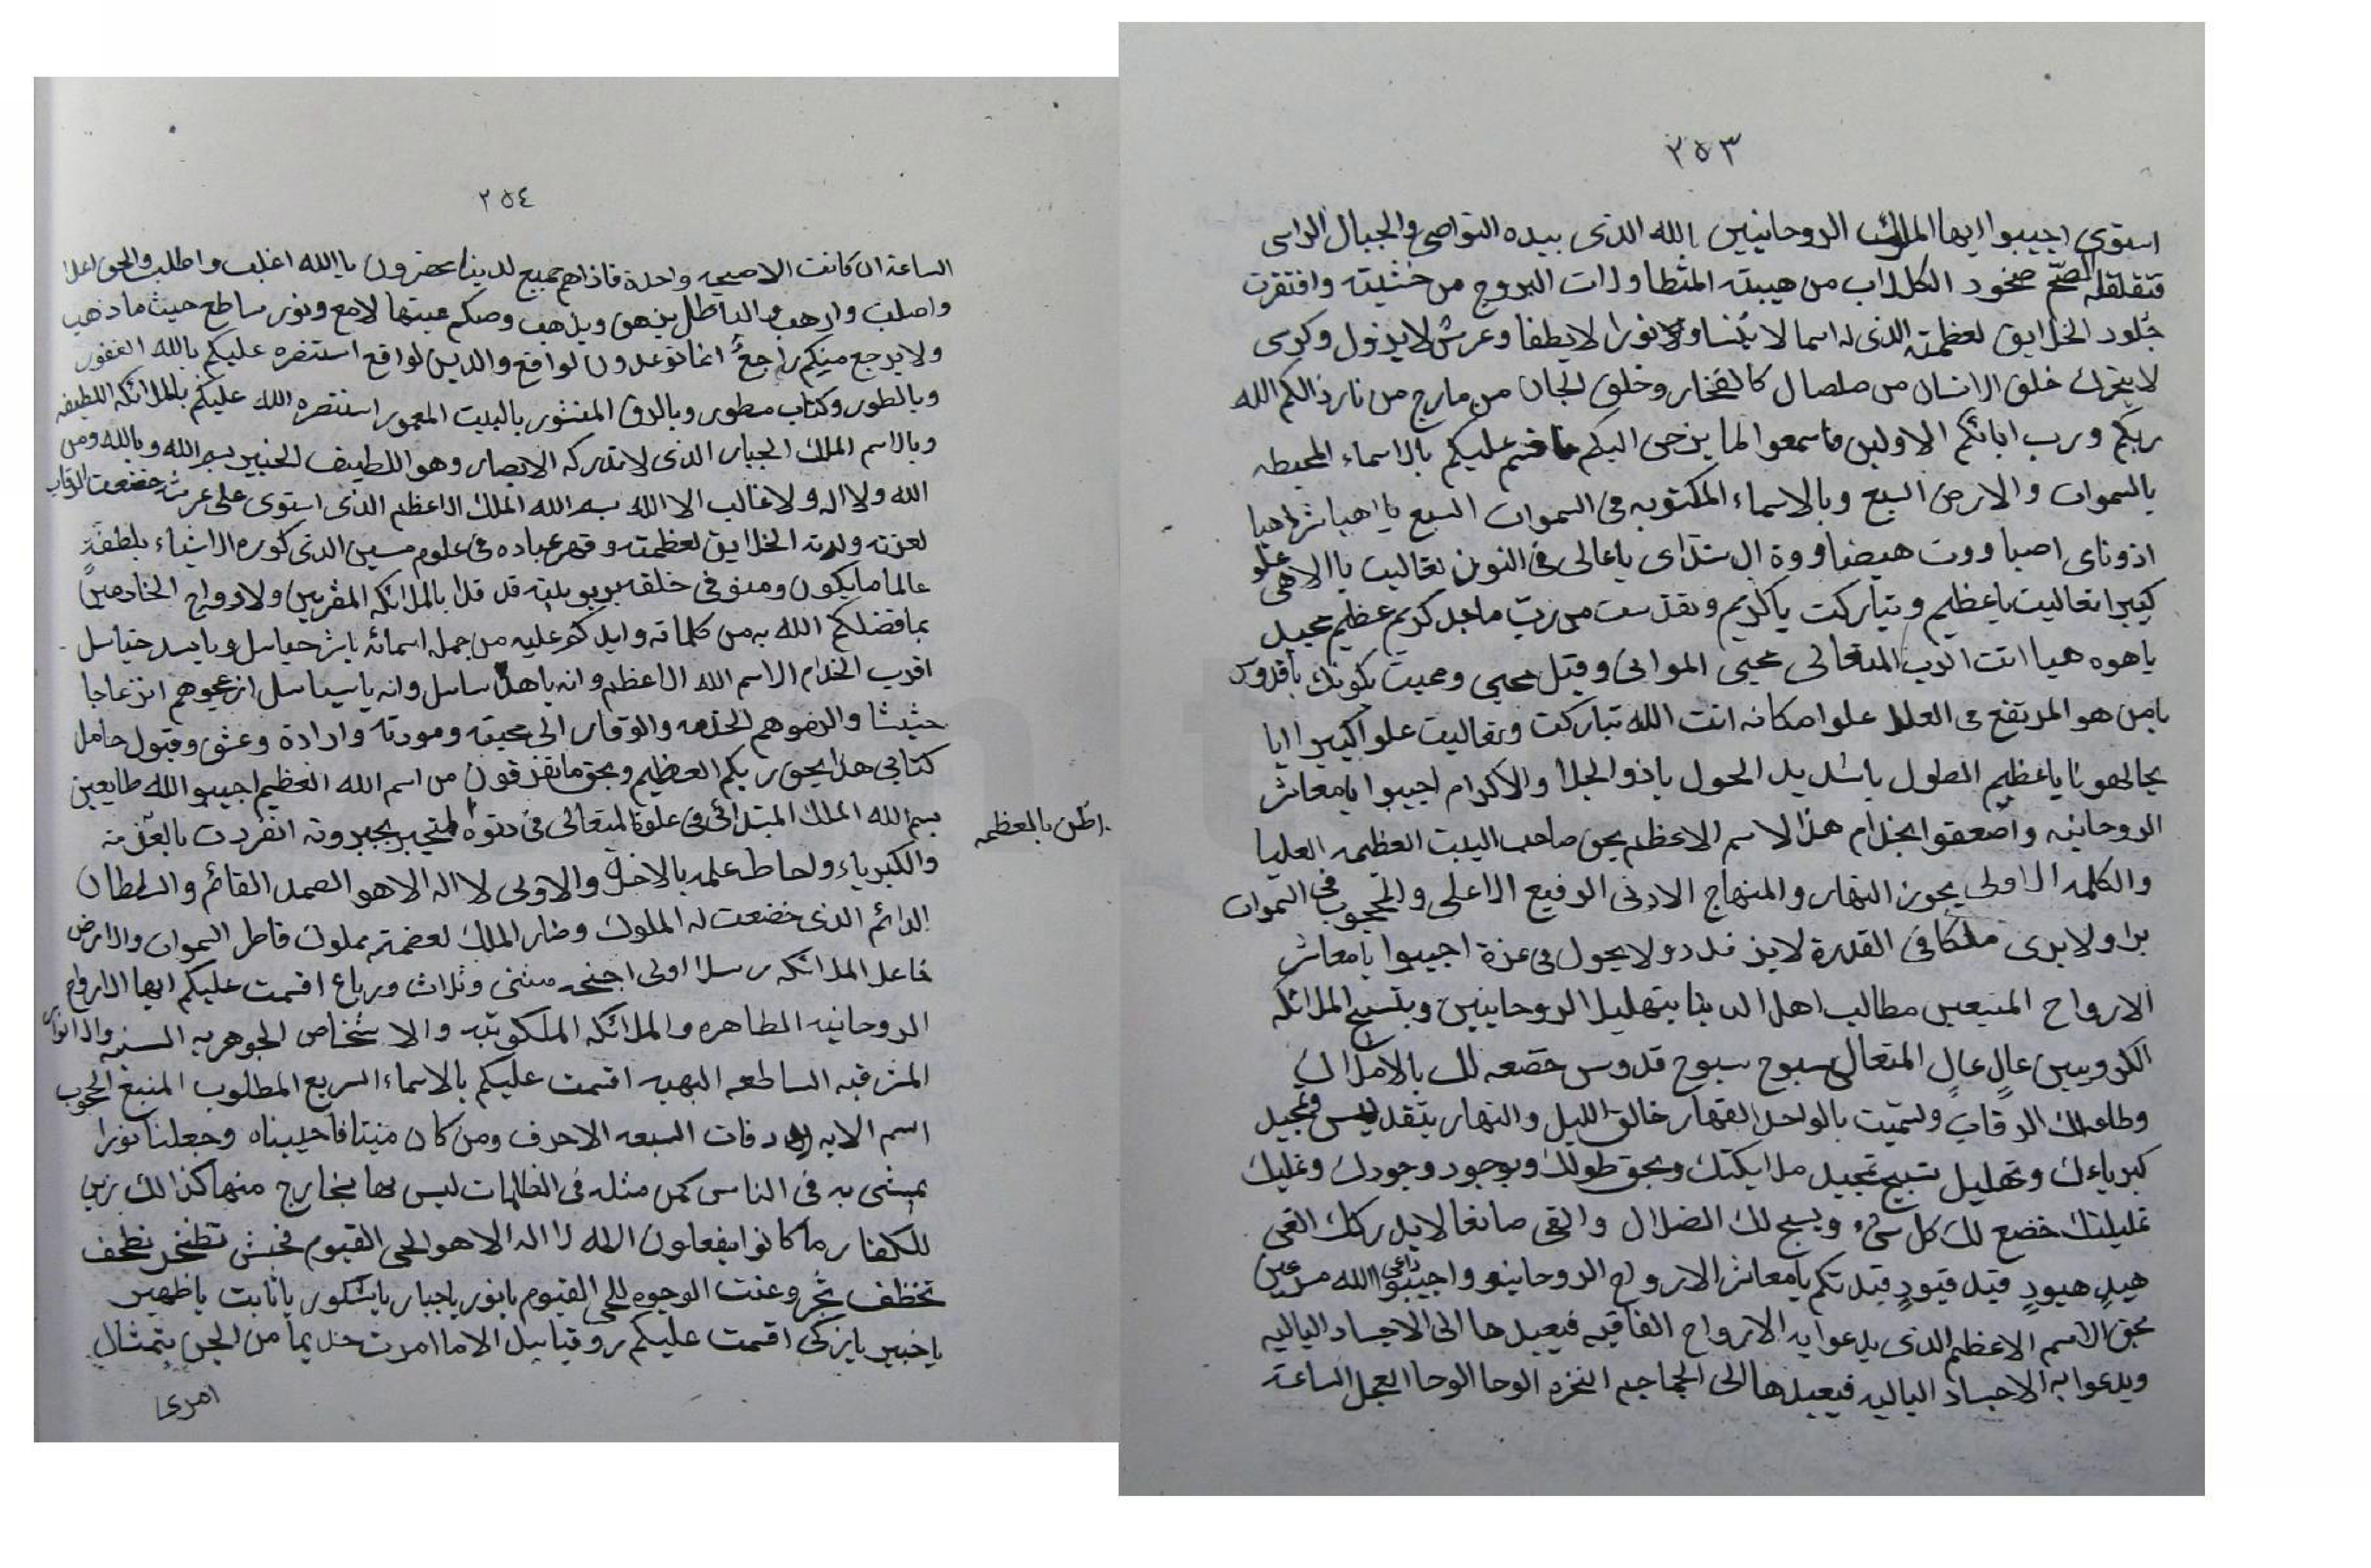 ٢٥٣
استوى اجيبوا ايها الملوك الروحانيين بالله الذى بيده النواصى والجبال الراسى
فتقلقله الصم صخود الكلاب من هيبته المثطا وذات البروج من خشيته وافتقرت
جلود الخلايق لعظمته الذى له اسما لا ينسا ولا نورا لا يطفا وعرش لا يزول وكرسى
لا يتحرك خلق الانسان من صلصال كالفخار وخلق الجان من مارج من نار ذالكم الله
ربكم ورب ابائكم الاولين فاسمعوا لما يزحى اليكم فاقسم عليكم بالاسماء المحيطه
بالسموات والارض السبع وبالاسماء المكتوبه فى السموات السبع يا اهيا شراهيا
اذوناى اصبا ووت هيضا ووة ال شداى يا عالى فى النون تعاليت يا الاهى علو
كبيرا تعاليت يا عظيم وتباركت يا كريم وتقدست من رب ماجد كريم عظيم مجيد
يا هوه هيا انت الرب المتعالى محيى الموانى وقبل محيى ومميت بكونك يا قدوس
يا من هو المرتفع فى العلا علوا مكانه انت الله تباركت وتعاليت علوا كبيرا ايا
بحالهونا يا عظيم الطول يا شديد الحول يا ذو الجلا والاكرام اجيبوا يا معاشر
الروحانيه واصعقوا بخدام هذا الاسم الاعظم بحق صاحب البيت العظيمه العليا
والكلمه الاولى بحوز النهار والمنهاج الادنى الرفيع الاعلى والمحجوب فى السموات
برا ولا يرى ملكا فى القدرة لا يز فلد دو لا يحول فى عزة اجيبوا يا معاشر
الارواح المنيعين مطالب اهل الدينا بتهليل الروحانيين وبتسبيح الملائكه
الكروبيين عالٍ عالٍ المتعال سبوح سبوح قدوس خضعه لك بالاملاك
وطاعه لك الرقاب وتسميت بالواحد القهار خالق الليل والنهار بتقديس وتمجيد
كبرياءك وتهليل تسبيح تمجيد ملايكتك وبحق طولك وبوجود وجودك وغليك
غليلتك خضع لك كل شىء ويسبح لك الضلال والقى صانعا لا يدركك الغى
هيلٍ هيودٍ قيل قيودٍ قيلتكم يا معاشر الارواح الروحانيه واجيبوا داعى الله مسرعين
بحق الاسم الاعظم الذى يدعوا به الارواح الفاقيه فيعيدها الى الاجساد الباليه
ويدعوا به الاجساد الباليه فيعيدها الى الجماجم النخره الوحا الوحا العجل الساعة
٢٥٤
الساعة ان كانت الا صيحه واحدة فاذاهم جميع لدينا محضرون يا الله اغلب واطلب والحق اعلا
واصلب وارهب والباطل يزهق ويذهب وصكم عيتها لامع ونور ساطع حيث ما ذهب
ولا يرجع منيكم راجع انما توعدون لواقع والدين لواقع استنصره عليكم بالله الغفور
وبالطور وكتاب مسطور وبالرق المنشور بالبيت المعمور استنصره الله عليكم بالملائكه اللطيفه
وبالاسم الملك الجبار الذى لا تدركه الابصار وهو اللطيف الخبير بسم الله وبالله ومن
الله ولا اله ولا غالب الا الله بسم الله الملك الاعظم الذى استوى على عرشه خضعت الرقاب
لعزته وذلة الخلايق لعظمته وقهر عباده فى علوم سين الذى كوره الاشياء بلطفه
عالما ما يكون ومنفى خلقه بربوبليته قد قلا بالملائكه المقربين ولا ارواح الخادمين
بما فضلكم الله به من كلماته وايدكم عليه من جمله اسمائه يا شرحياسل ويا يسد خياسل
اقرب الخدام الاسم الله الاعظم وانه يا هذ ساسل وانه يا سياسل ازعجوهم انزعاجا
حثيثا والرضوهم الخدمه والوقار الى محبته ومودته وارادة وعشق وقبول حامل
كتابى هذا بحق ربكم العظيم وبحق ما تفزقون من اسم الله العظيم اجيبوا الله طايعين
بسم الله الملك المبتدائى فى علوة المتعالى فى دنوه المتجبر بجبروته انفردت بالعزة
اظن بالعظمه
والكبرياء واحاط علمه بالاخرة والاولى لا اله الا هو الصمد القائم والسلطان
الدائم الذى خضعت له الملوك وضار الملك لعضمته مملوك فاطر السموات والارض
فاعل الملائكه رسلا اولى اجنحه مثنى وثلاث ورباع اقسمت عليكم ايها الارواح
الروحانيه الطاهره والملائكه الملكوتيه والاشخاص الجوهريه السنيه والانوار
المشرقيه الساطعه البهيه اقسمت عليكم بالاسماء السريع المطلوب المنبع المحبوب
اسم الايه دفات السبعه الاحرف ومن كان ميتا فاحييناه وجعلنا نورا
يمشى به فى الناس كمن مثله فى الظلمات ليس بها بخارج منها كذالك زين
للكفار ما كانوا يفعلون الله لا اله الا هو الحى القيوم فحبش تطخر نطحف
تخظف شجر وعنت الوجوه للحى القيوم يا نور يا جبار يا شكور يا ثابت يا ظهير
يا خبير يا زكى اقسمت عليكم روقيابيل الا ما امرت خديما من الجن يتمثال
امرى